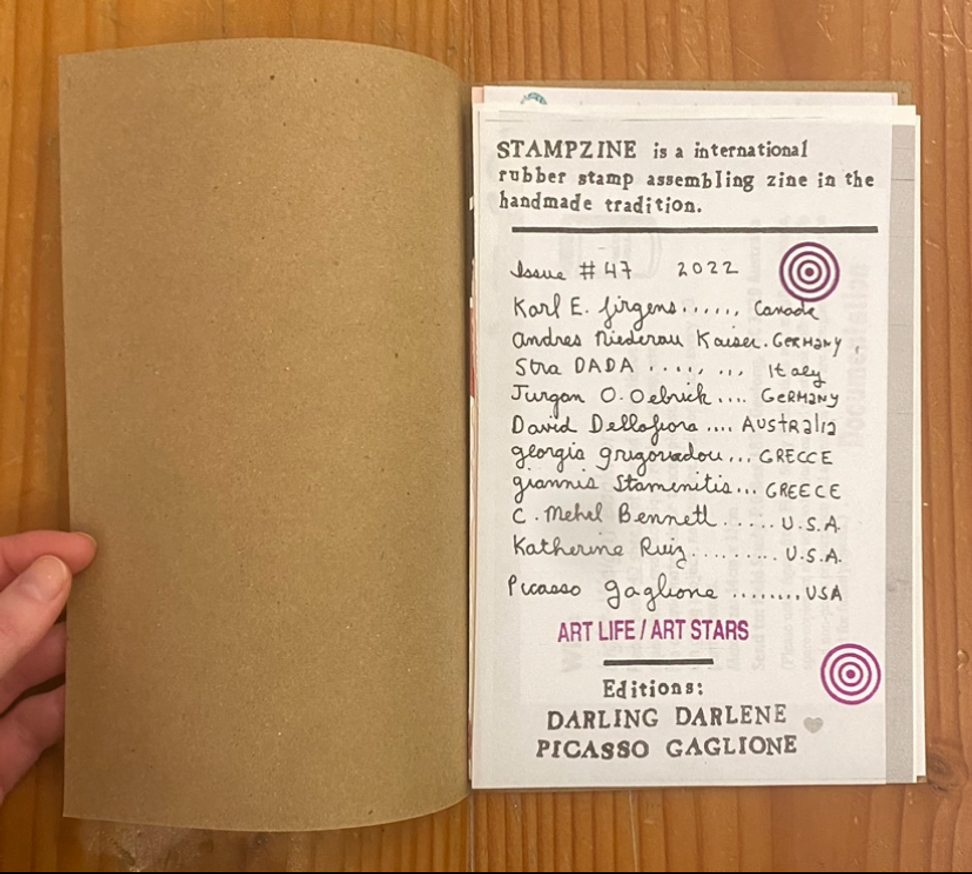 STAMPZINE is a international
rubber stamp assembling zine in the
handmade tradition.
Issue #47 2022
Karl E. Jirgens...... Canada
Andres Niederau Kaiser. GERMANY
Stra DADA ........ Italy
Jurgan O. Oebrick.... GERMANY
David Dellafiora .... AUSTRALIA
georgia grigoriadou... GRECCE
giannis Stamenitis... GREECE
C. Mehel Bennett...... U.S.A.
Katherine Ruiz.......... U.S.A.
Picasso gaglione ........USA
ART LIFE / ART STARS
Editions:
DARLING DARLENE
PICASSO GAGLIONE